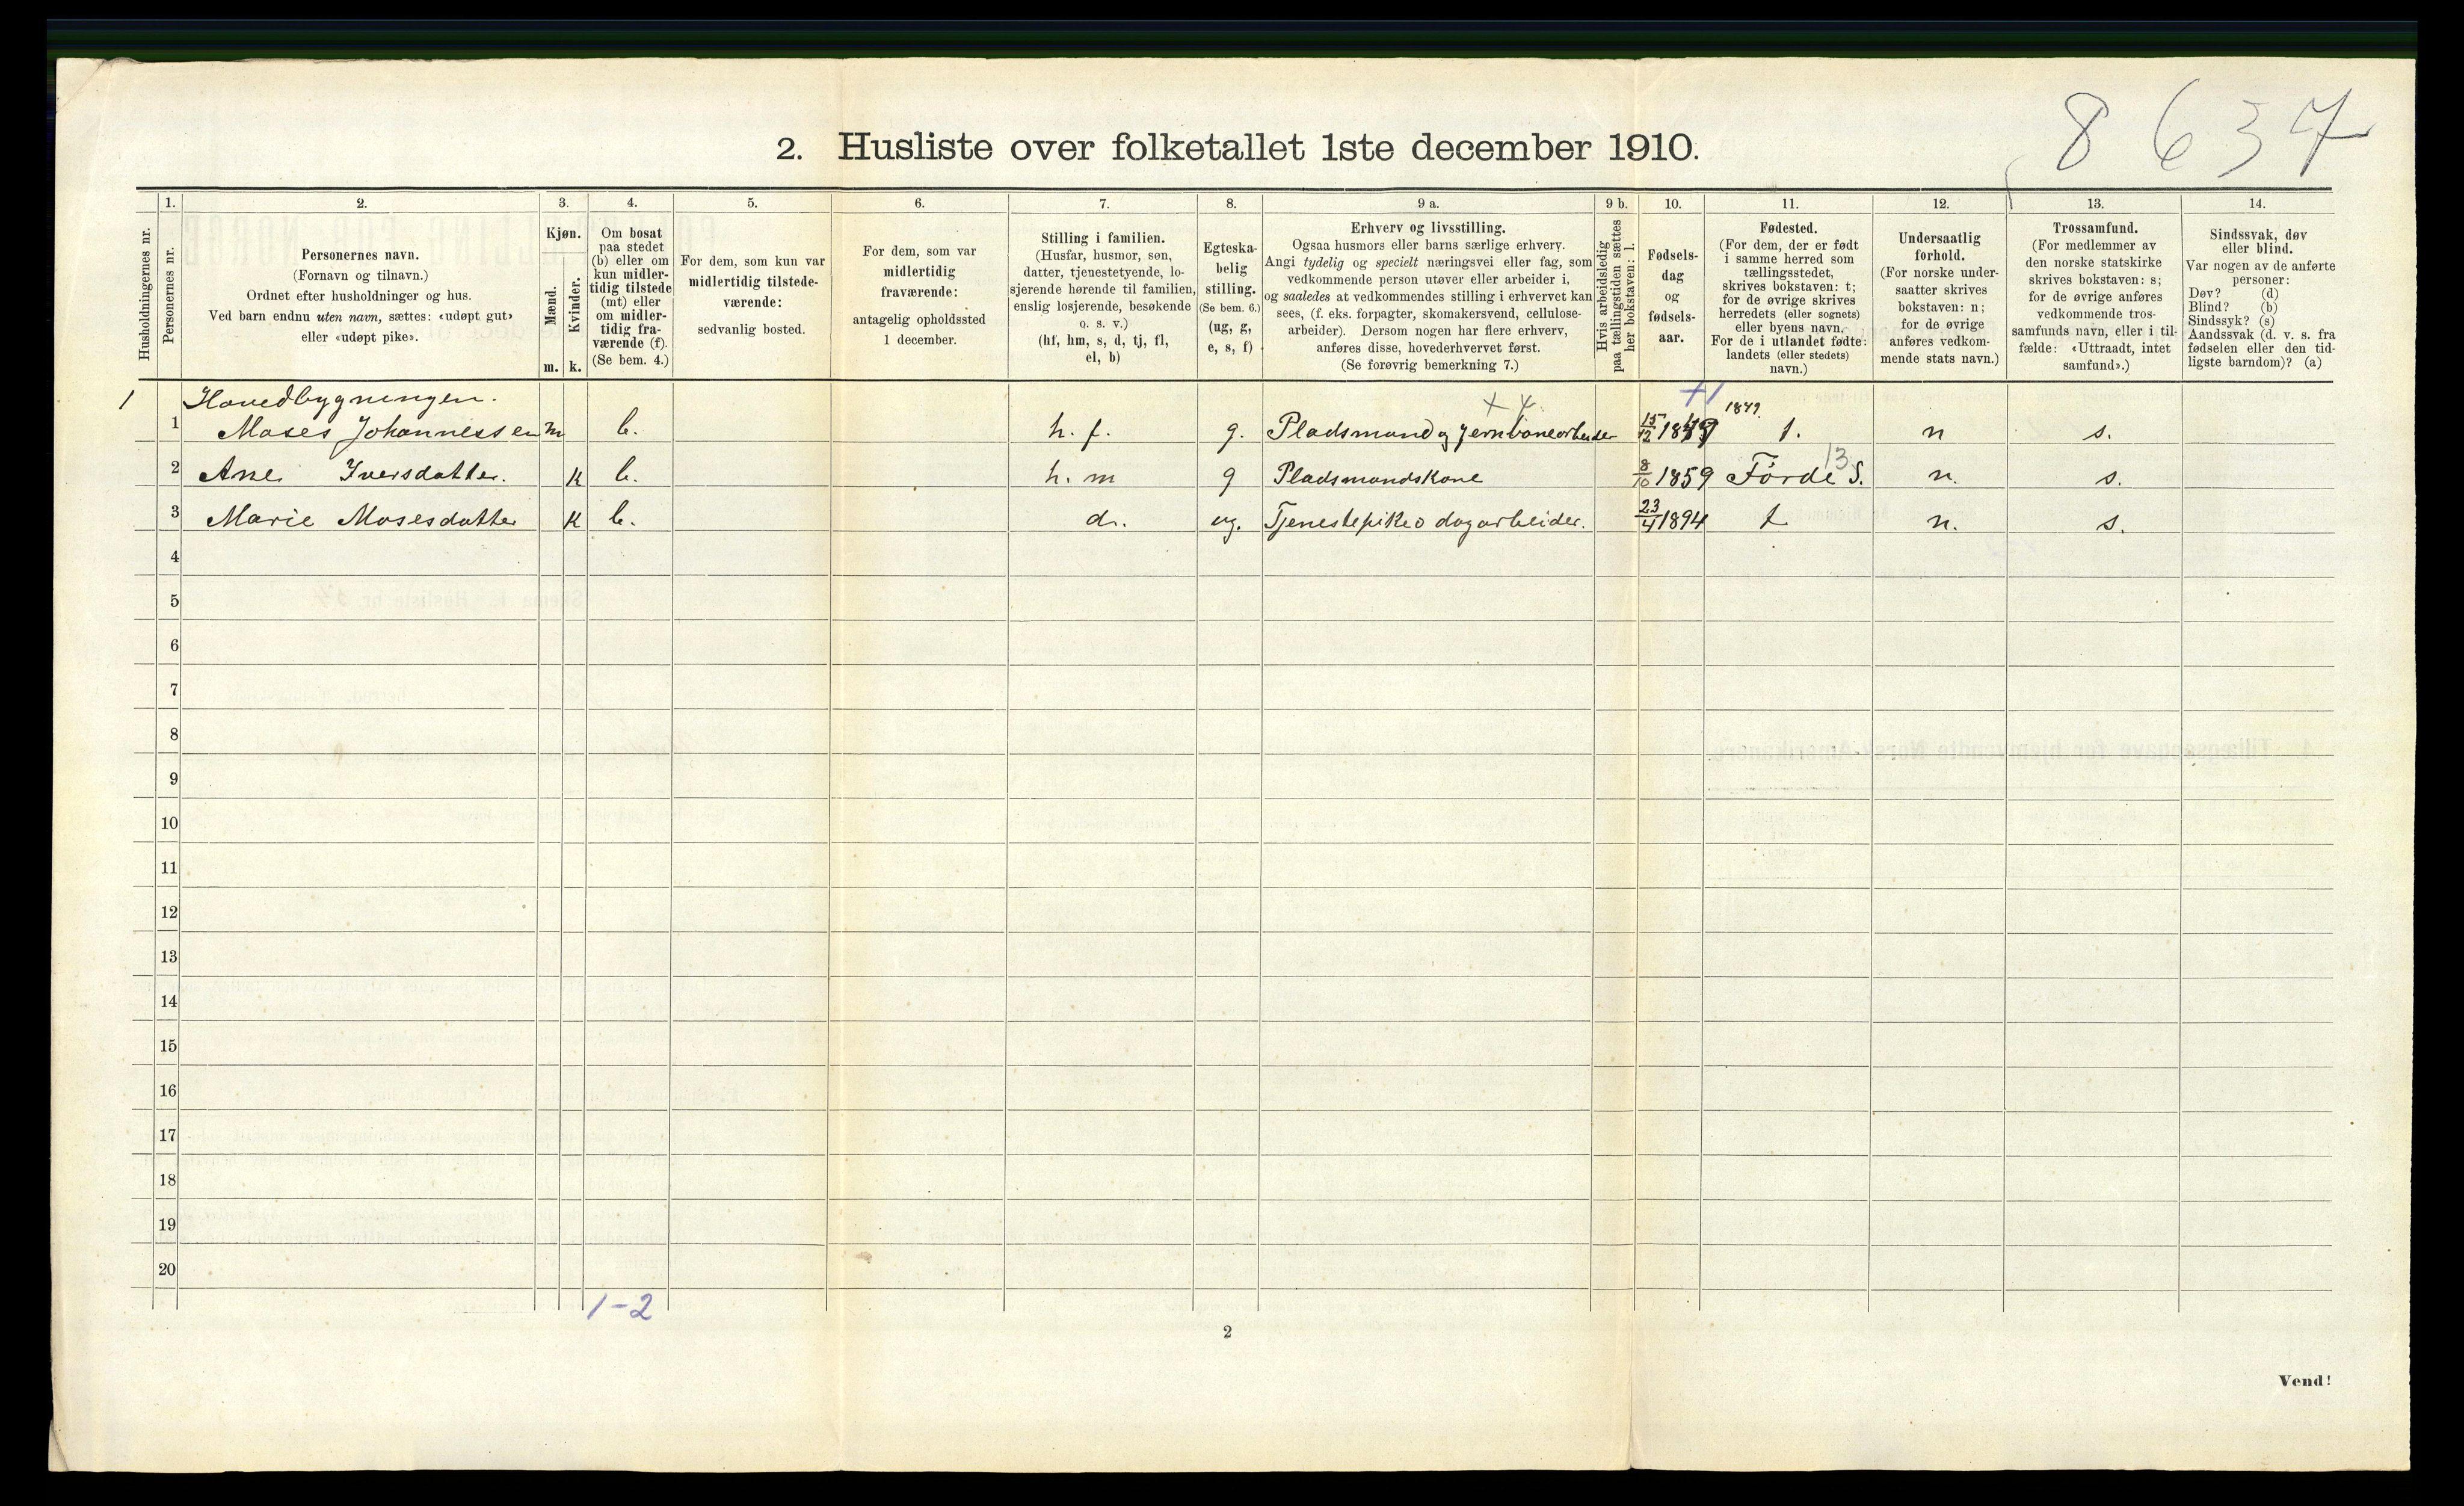 8 637
2. Husliste over folketallet 1ste december 1910.
1. 2. 3. 4. 5. 6. 7. 8. 9 a. 9 b. 10. 11. 12. 13. 14.
Husholdningernes nr.
Personernes nr.
Personernes navn.
(Fornavn og tilnavn.)
Ordnet efter husholdninger og hus.
Ved barn endnu uten navn, sættes: «udøpt gut»
eller «udøpt pike».
Kjøn.
Mænd.
Kvinder.
m. k.
Om bosat
paa stedet
(b) eller om
kun midler-
tidig tilstede
(mt) eller
om midler-
tidig fra-
værende (f).
(Se bem. 4.)
For dem, som kun var
midlertidig tilstede-
værende:
sedvanlig bosted.
For dem, som var
midlertidig
fraværende:
antagelig opholdssted
1 december.
Stilling i familien.
(Husfar, husmor, søn,
datter, tjenestetyende, lo-
sjerende hørende til familien,
enslig losjerende, besøkende
o. s. v.)
(hf, hm, s, d, tj, fl,
el, b)
Egteska-
belig
stilling.
(Se bem. 6.)
(ug, g,
e, s, f)
Erhverv og livsstilling.
Ogsaa husmors eller barns særlige erhverv.
Angi tydelig og specielt næringsvei eller fag, som
vedkommende person utøver eller arbeider i,
og saaledes at vedkommendes stilling i erhvervet kan
sees, (f. eks. forpagter, skomakersvend, cellulose-
arbeider). Dersom nogen har flere erhverv,
anføres disse, hovederhvervet først.
(Se forøvrig bemerkning 7.)
Hvis arbeidsledig
paa tællingstiden sættes
her bokstaven: l.
Fødsels-
dag
og
fødsels-
aar.
Fødested.
(For dem, der er født
i samme herred som
tællingsstedet,
skrives bokstaven: t;
for de øvrige skrives
herredets (eller sognets)
eller byens navn.
For de i utlandet fødte:
landets (eller stedets)
navn.)
Undersaatlig
forhold.
(For norske under-
saatter skrives
bokstaven: n;
for de øvrige
anføres vedkom-
mende stats navn.)
Trossamfund.
(For medlemmer av
den norske statskirke
skrives bokstaven: s;
for de øvrige anføres
vedkommende tros-
samfunds navn, eller i til-
fælde: «Uttraadt, intet
samfund».)
Sindssvak, døv
eller blind.
Var nogen av de anførte
personer:
Døv? (d)
Blind? (b)
Sindssyk? (s)
Aandssvak (d. v. s. fra
fødselen eller den tid-
ligste barndom)? (a)
1 Hovedbygningen. x 4 +1 1849.
1 Moses Johannessen m b. h. f. g. Pladsmand og jernbanearbeider 15/12 1849 t. n s.
2 Ane Iversdatter. k b. h. m g Pladsmandskone 8/10 1859 Førde S. 13 n. s.
3 Marie Mosesdatter k b. d. ug. Tjenestepike o dagarbeider. 23/4 1894 t n. s.
4
5
6
7
8
9
10
11
12
13
14
15
16
17
18
19
20
1-2
2
Vend!